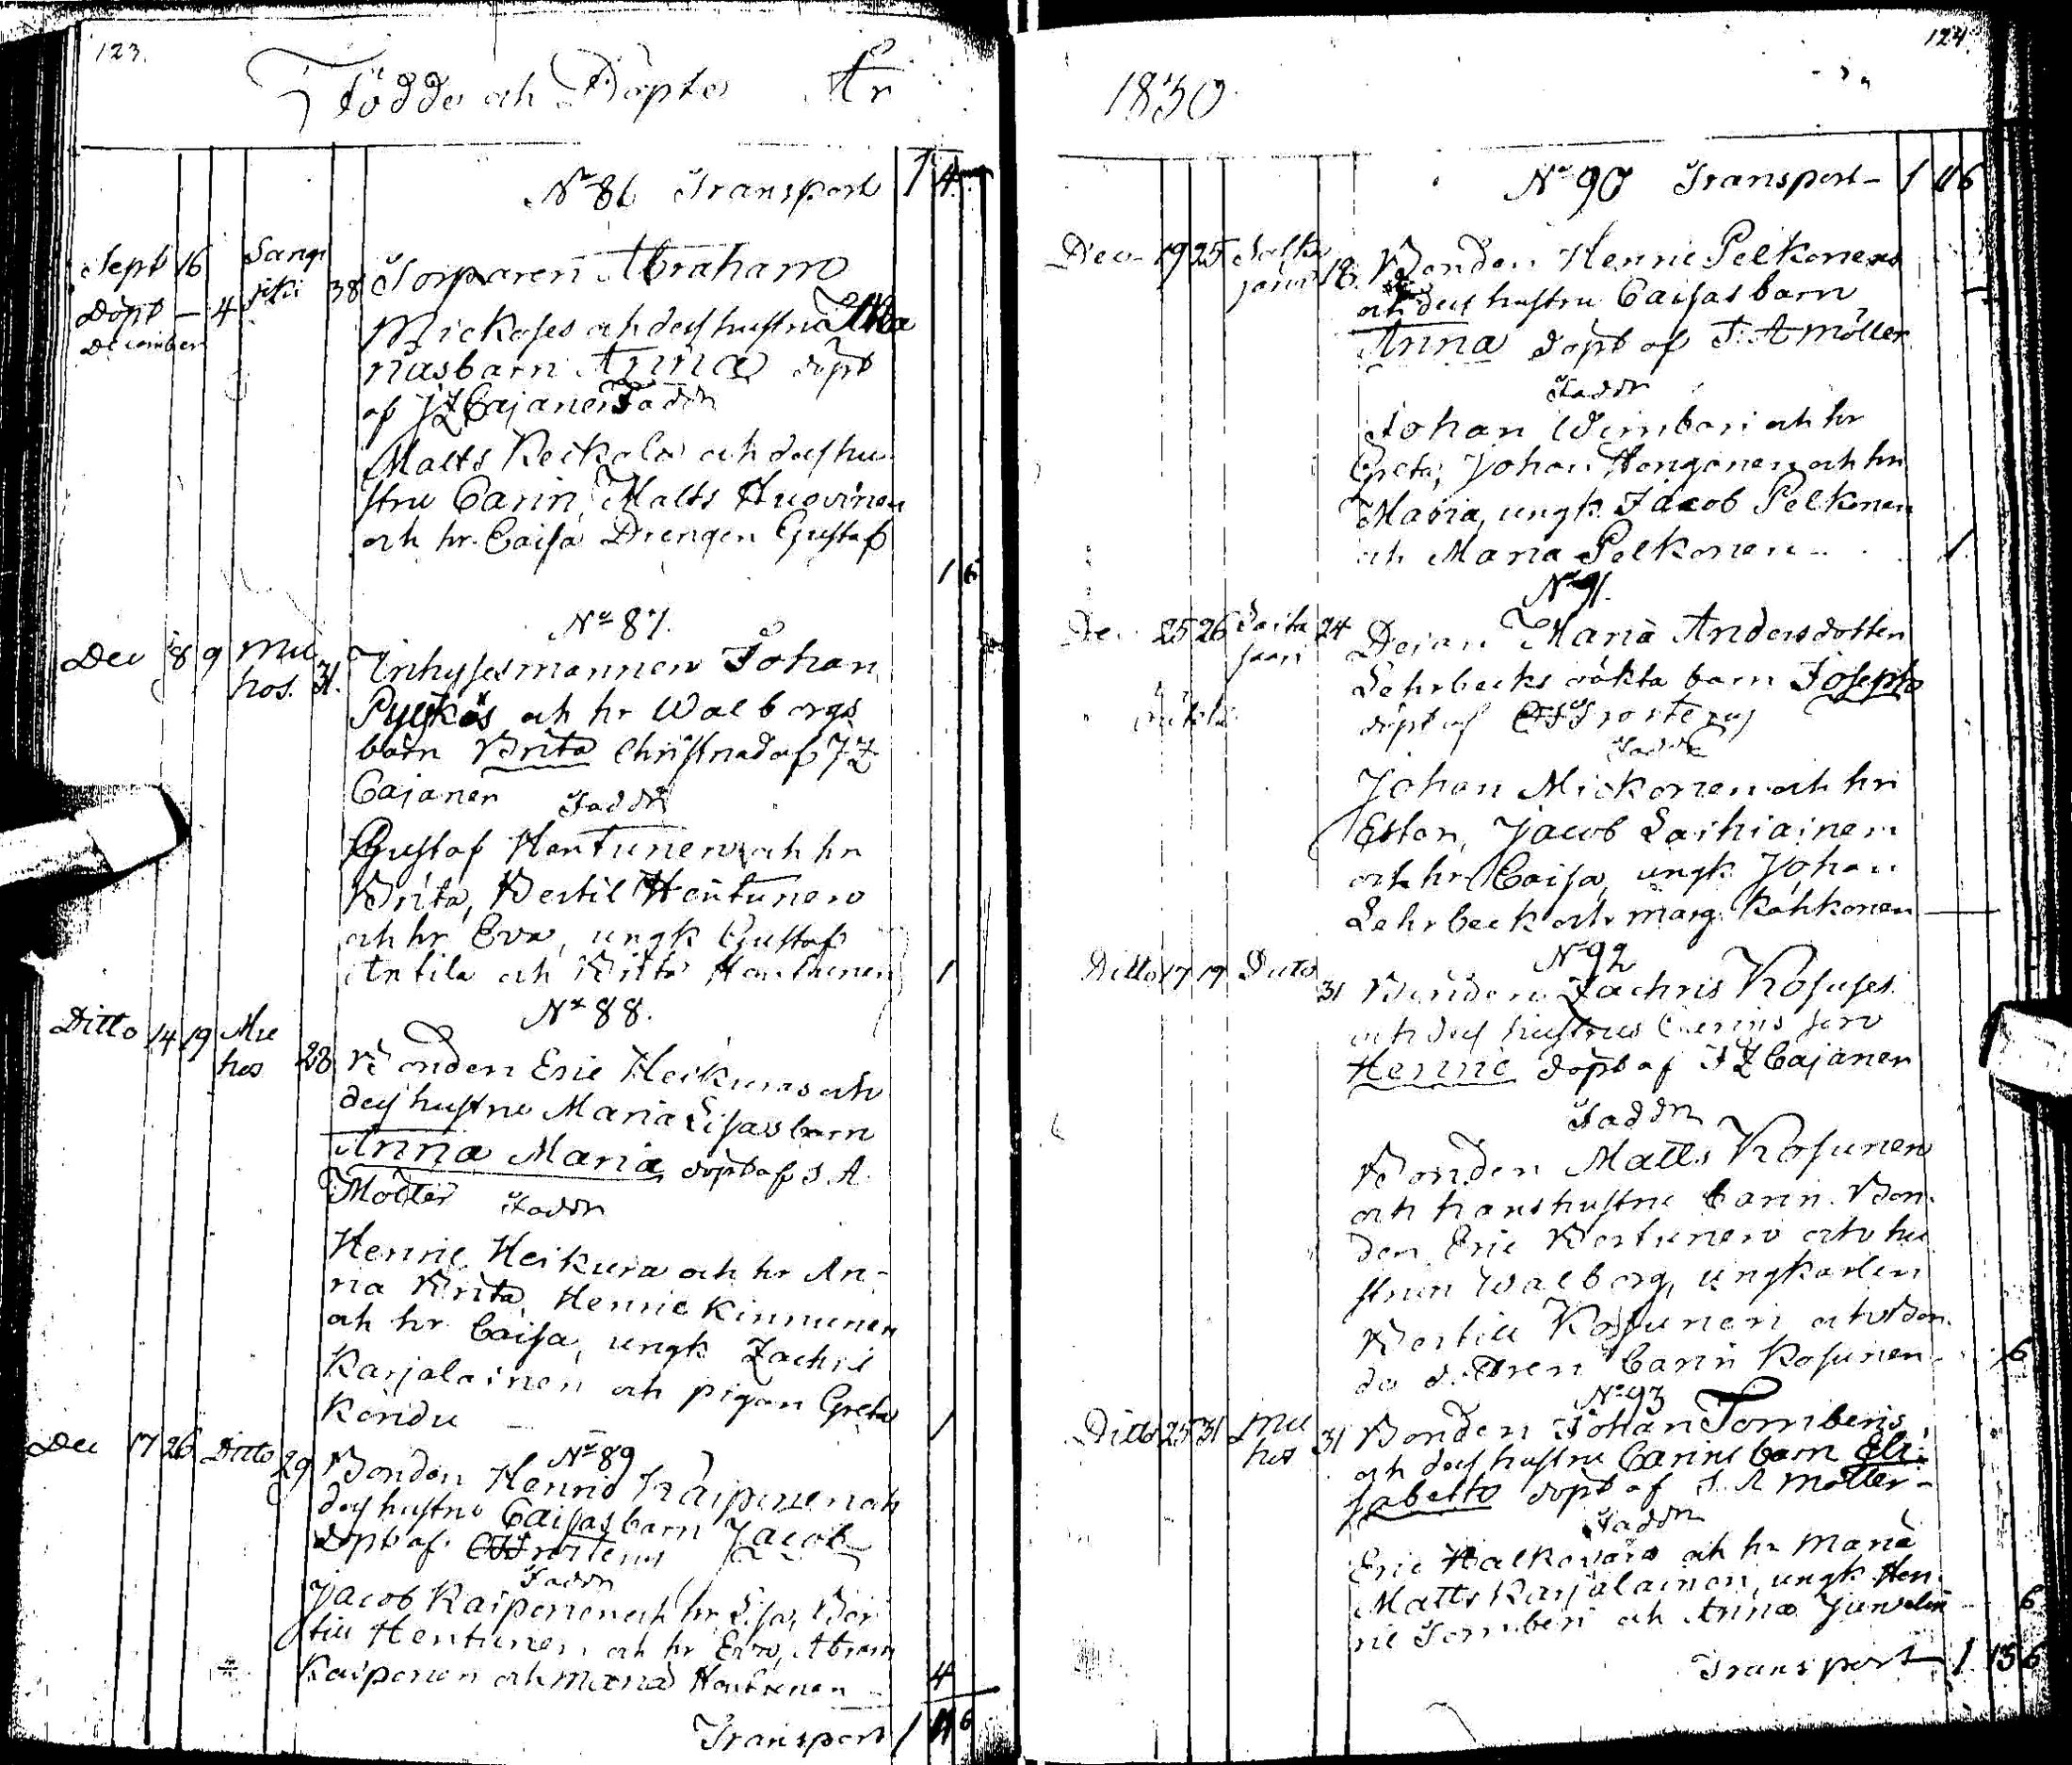 123.
Födde och Döpte År
No 86 Transport 1 4
Sept 16 Sangi
Döpt – 4 joki 38 Torparen Abraham
December
Mickoses och dess hustru
nas barn Anna döpt
af J Z Cajanen Faddr
Matts Keckola och dess hu
stru Carin, Matts Huovinen
och hr Caisa Drengen Gustaf
1 6
No 87.
Dec 8 9 Mu
hos. 31. Inhysesmannen Johan
Pyykkös och hr Walborgs
barn Brita Christnad af J Z
Cajanen Faddr
Gustaf Hentunen och hr
Brita, Bertil Hentunen
och hr Eva, ungk Gustaf
Antila och Brita Hentunen 1
No 88.
Ditto 14 19 Mu
hos 28 Bonden Eric Heikuras och
dess hustru Maria Lisas barn
Anna Maria döpt af J A
Möller Faddr
Henric Heikura och hr An-
na Brita, Henric Kinnunen
och hr Caisa, ungk Zachris
Karjalainen och pigan Greta
Kondu 1
No 89
Dec 17 26 Ditto 29 Bonden Henric Kaiponen och
dess hustru Caisas barn Jacob
döpt af Frosterus
Faddr
Jacob Kaiponen och hr Lisa, Ber
till Hentunen och hr Eva, Abram
Kaiponen och Maria Hentunen 4
Transport 1 11 6
124.
1830
No 90 Transport – 1 11 6
Dec 19 25 18. Bonden Henric Pelkonens
och dess hustru Caisas barn
Anna döpt af J. A Möller
Faddr
Johan Wimbari och hr
Greta, Johan Hongonen och hr
Maria, ungk. Jacob Pelkonen
och Maria Pelkonen 1
No 91.
Dec 25 26 Saita 24 Dejan Maria Andersdotter
saari
Lehrbecks oäkta barn Joseph
döpt af Frosterus
Faddr
Johan Mickonen och hr
Ester, Jacob Laihiainen
och hr Caisa, ungk Johan
Lehrbeck och marg. Kähkönen
No 92
Ditto 17 19 Ditto 31 Bonden Zachris Kosuses
och dess hustrus Carins son
Henric döpt af J Z Cajanen
Faddr
Bonden Matts Kosunen
och hans hustru Carin. Bon-
den Eric Kortunen och hu
strun Walborg, ungkarlen
Bertill Kosunen och Bon-
da dottren Carin Kosunen 6
No 93
Ditto 25 31 Mu
hos 31 Bonden Johan Tornberis
och dess hustru Carins barn Eli-
sabetta döpt af J. A Möller –
Faddr
Eric Halkovara och hr Maria
Matts Karjalainen, ungk Hen-
ric Tornberi och Anna Junselin 6
Transport 1. 13 6